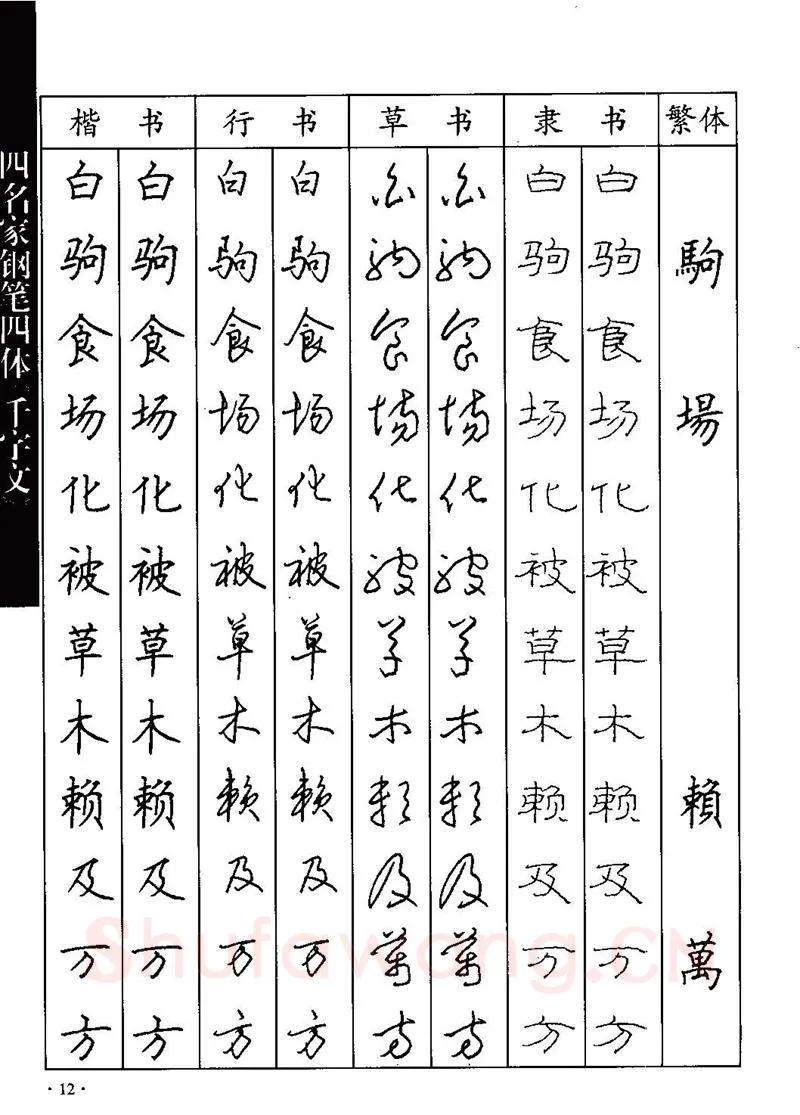 四名家钢笔四体 千字文
楷书 行书 草书 隶书 繁体
白 白 白 白 白 白 白 白
驹 驹 驹 驹 驹 驹 驹 驹 駒
食 食 食 食 食 食 食 食
场 场 场 场 場 場 场 场 場
化 化 化 化 化 化 化 化
被 被 被 被 被 被 被 被
草 草 草 草 草 草 草 草
木 木 木 木 木 木 木 木
赖 赖 赖 赖 赖 赖 赖 赖 賴
及 及 及 及 及 及 及 及
万 万 万 万 萬 萬 万 万 萬
方 方 方 方 方 方 方 方
Shufawang.CN
·12·